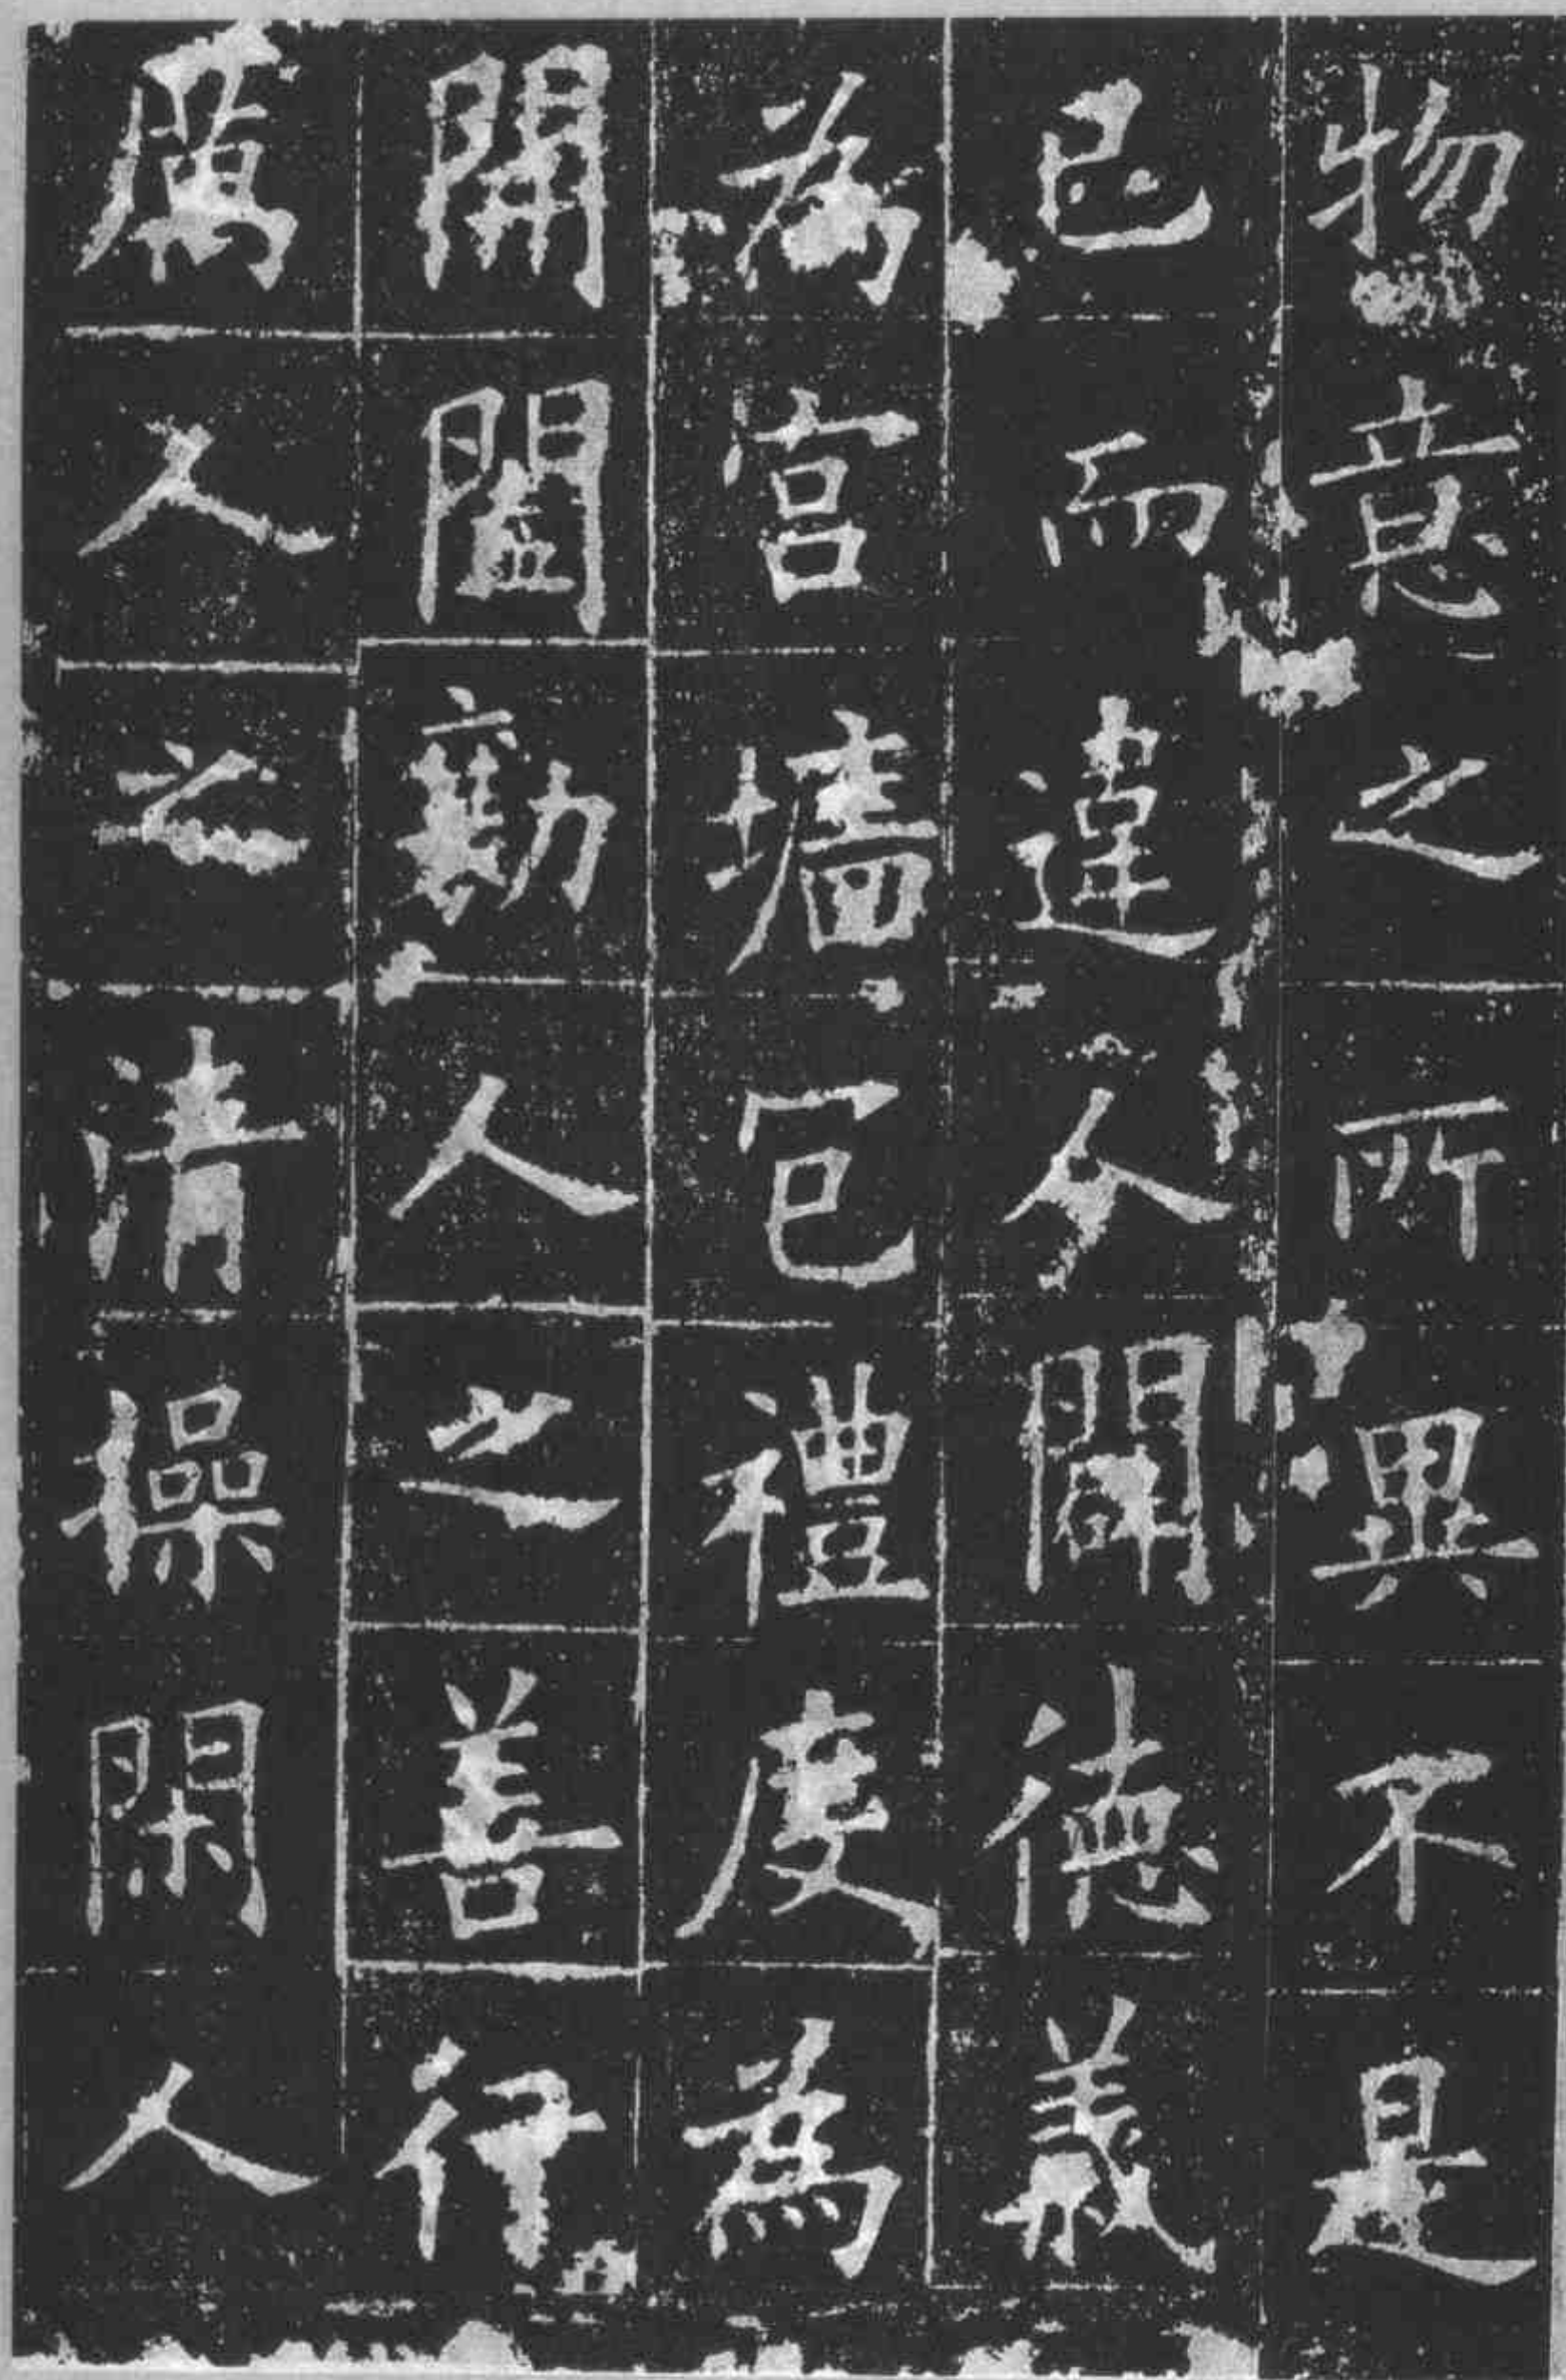 物意之所異不是
己而違人闢德義
為宮墻包禮度為
開闔勷人之善行
厲人之清操閑人